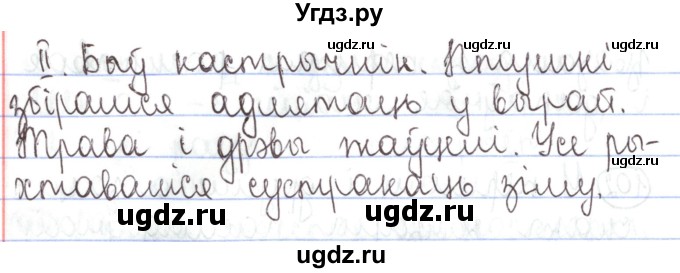 Угдз.ру
II. Быў кастрычнік. Птушкі
ugdz.ru
ugdz.ru
збіраліся адлятаць у вырай.
ugdz.ru
Трава і дрэвы жаўцелі. Усе ры-
хтаваліся сустракаць зіму.
ugdz.ru
ugdz.ru
ugdz.ru